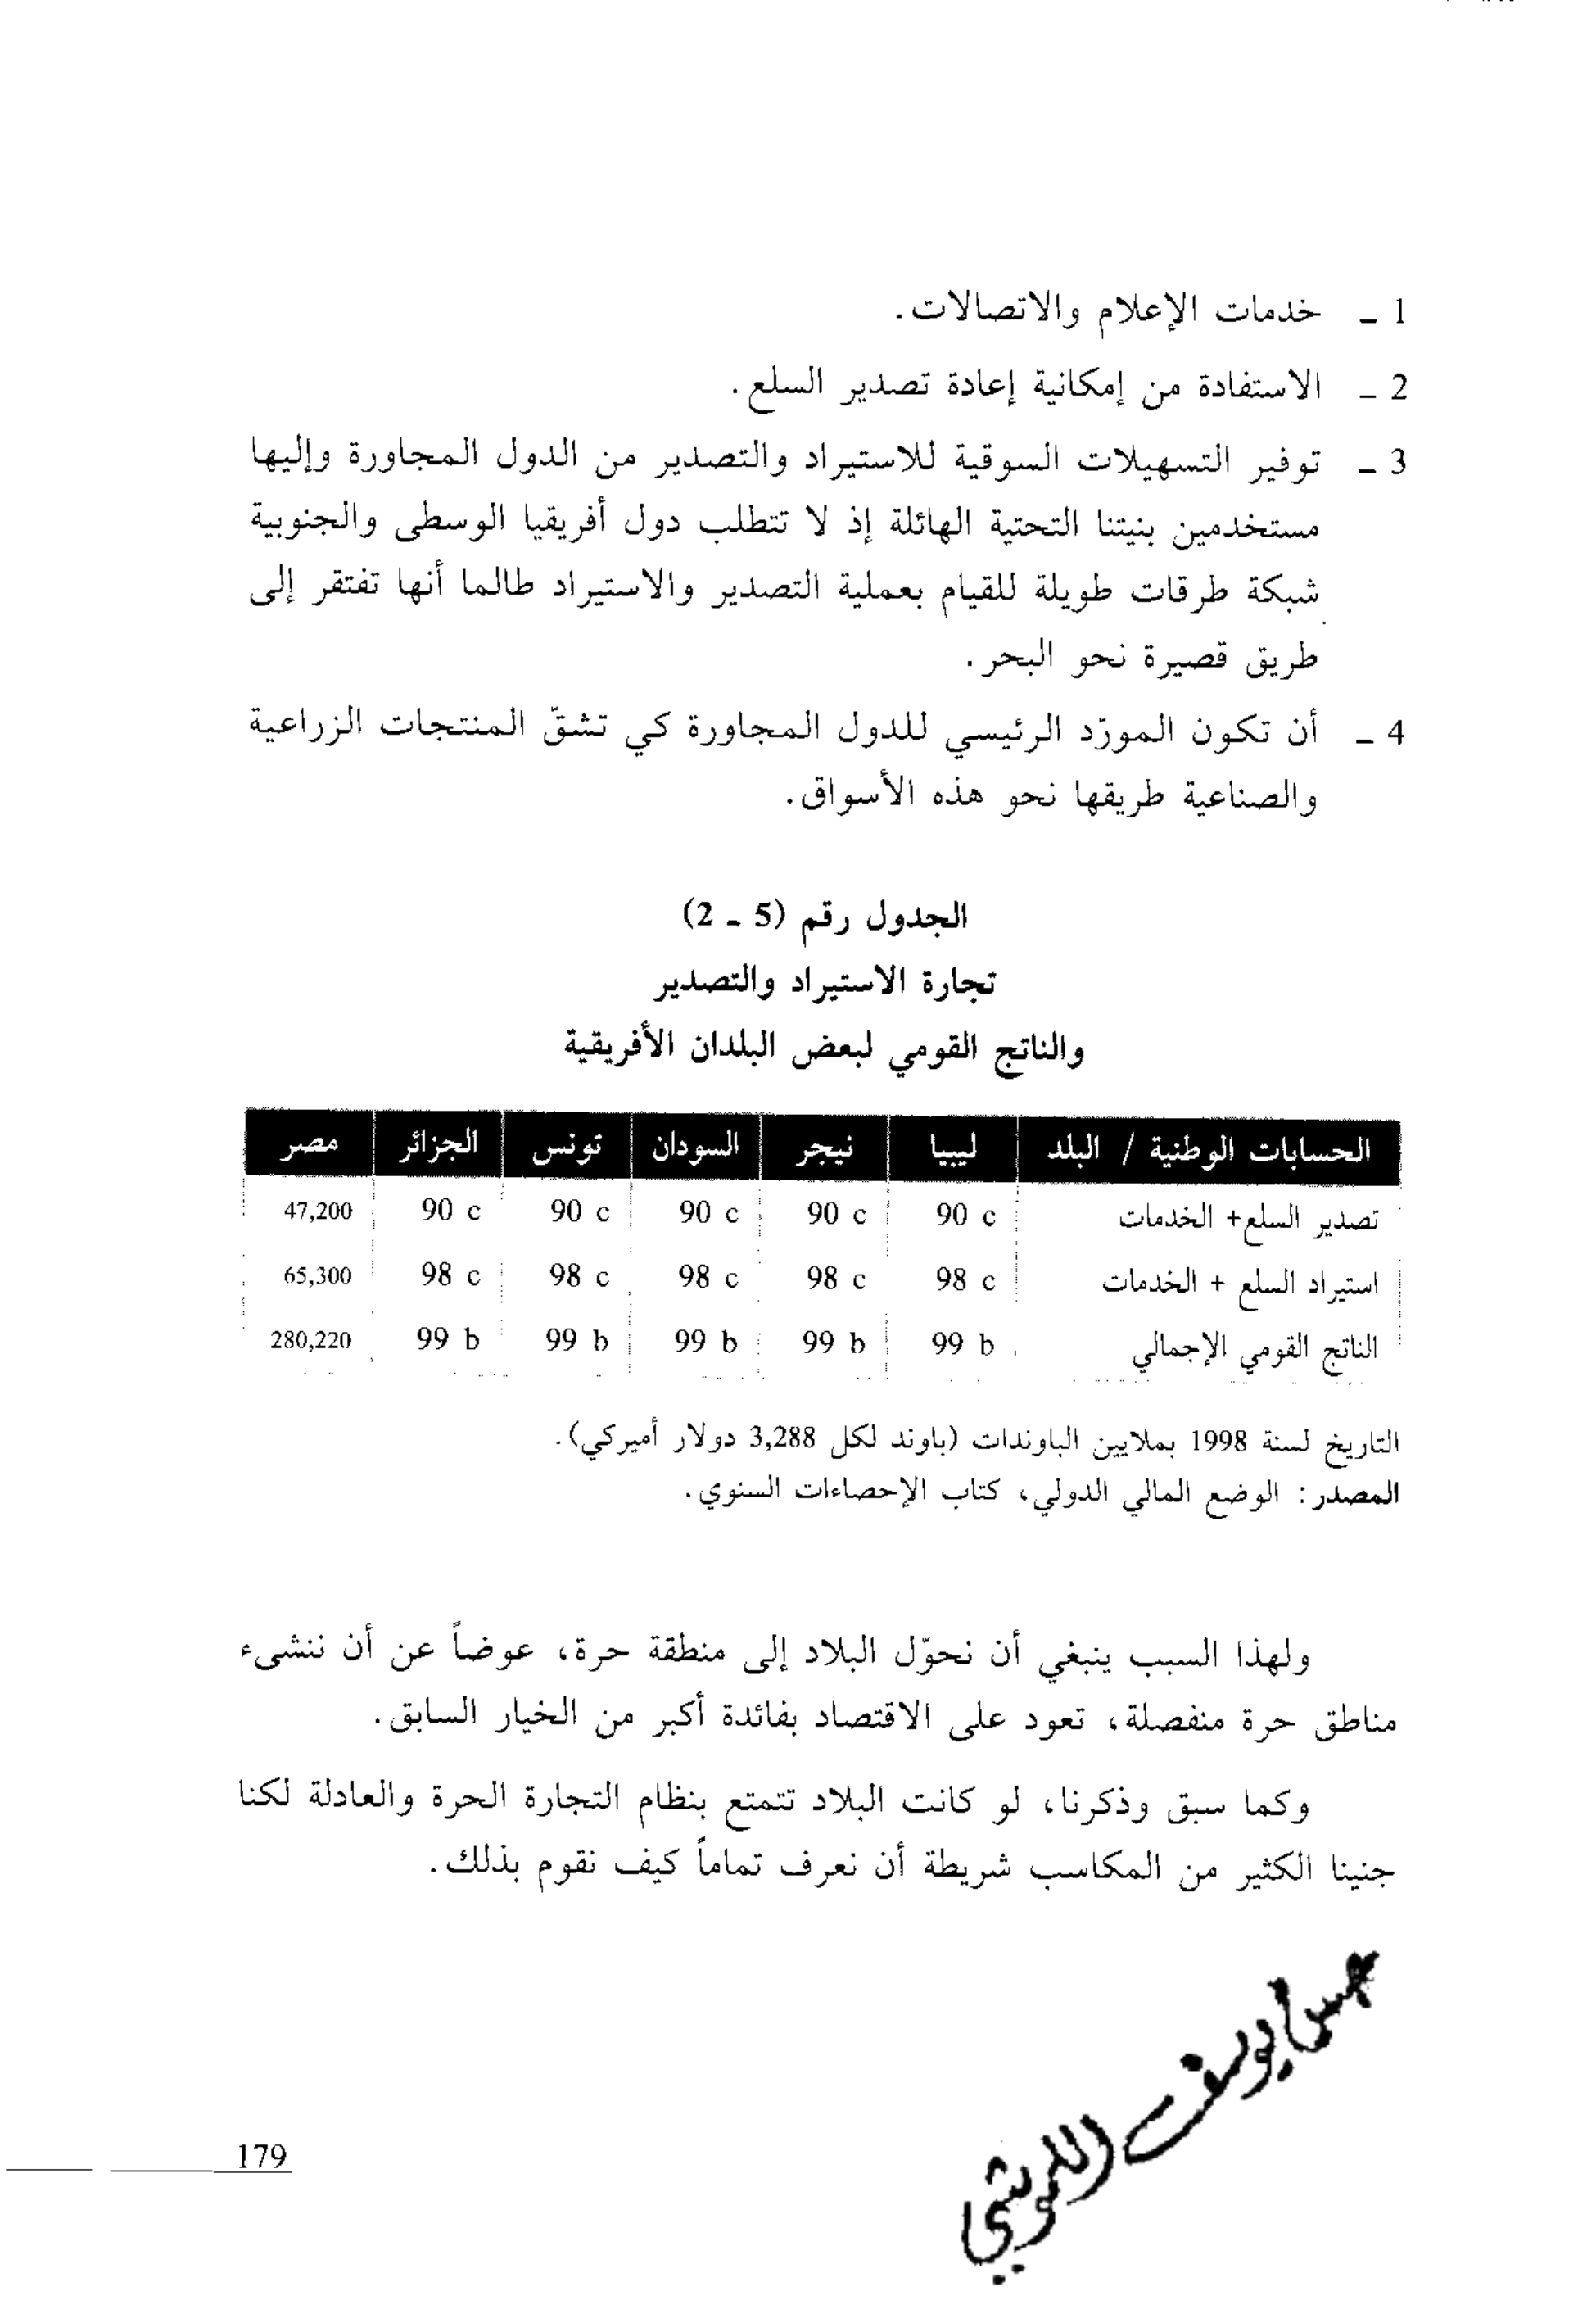 1 ـ خدمات الإعلام والاتصالات.
2 ـ الاستفادة من إمكانية إعادة تصدير السلع.
3 ـ توفير التسهيلات السوقية للاستيراد والتصدير من الدول المجاورة وإليها
مستخدمين بنيتنا التحتية الهائلة إذ لا تتطلب دول أفريقيا الوسطى والجنوبية
شبكة طرقات طويلة للقيام بعملية التصدير والاستيراد طالما أنها تفتقر إلى
طريق قصيرة نحو البحر.
4 ـ أن تكون المورّد الرئيسي للدول المجاورة كي تشقّ المنتجات الزراعية
والصناعية طريقها نحو هذه الأسواق.
الجدول رقم (5 ـ 2)
تجارة الاستيراد والتصدير
والناتج القومي لبعض البلدان الأفريقية
الحسابات الوطنية / البلد ليبيا نيجر السودان تونس الجزائر مصر
تصدير السلع+ الخدمات 90 c 90 c 90 c 90 c 90 c 47,200
استيراد السلع + الخدمات 98 c 98 c 98 c 98 c 98 c 65,300
الناتج القومي الإجمالي 99 b 99 b 99 b 99 b 99 b 280,220
التاريخ لسنة 1998 بملايين الباوندات (باوند لكل 3,288 دولار أميركي).
المصدر: الوضع المالي الدولي، كتاب الإحصاءات السنوي.
ولهذا السبب ينبغي أن نحوّل البلاد إلى منطقة حرة، عوضاً عن أن ننشىء
مناطق حرة منفصلة، تعود على الاقتصاد بفائدة أكبر من الخيار السابق.
وكما سبق وذكرنا، لو كانت البلاد تتمتع بنظام التجارة الحرة والعادلة لكنا
جنينا الكثير من المكاسب شريطة أن نعرف تماماً كيف نقوم بذلك.
يوسف
179